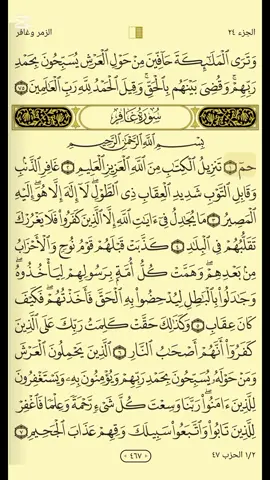 الجزء ٢٤
الزمر وغافر
وَتَرَى ٱلْمَلَٰٓئِكَةَ حَآفِّينَ مِنْ حَوْلِ ٱلْعَرْشِ يُسَبِّحُونَ بِحَمْدِ
رَبِّهِمْ ۖ وَقُضِىَ بَيْنَهُم بِٱلْحَقِّ ۚ وَقِيلَ ٱلْحَمْدُ لِلَّهِ رَبِّ ٱلْعَٰلَمِينَ ٧٥
سُورَةُ غَافِرٍ
بِسْمِ ٱللَّهِ ٱلرَّحْمَٰنِ ٱلرَّحِيمِ
حمٓ ١ تَنزِيلُ ٱلْكِتَٰبِ مِنَ ٱللَّهِ ٱلْعَزِيزِ ٱلْعَلِيمِ ٢ غَافِرِ ٱلذَّنۢبِ
وَقَابِلِ ٱلتَّوْبِ شَدِيدِ ٱلْعِقَابِ ذِى ٱلطَّوْلِ ۖ لَآ إِلَٰهَ إِلَّا هُوَ ۖ إِلَيْهِ
ٱلْمَصِيرُ ٣ مَا يُجَٰدِلُ فِىٓ ءَايَٰتِ ٱللَّهِ إِلَّا ٱلَّذِينَ كَفَرُوا۟ فَلَا يَغْرُرْكَ
تَقَلُّبُهُمْ فِى ٱلْبِلَٰدِ ٤ كَذَّبَتْ قَبْلَهُمْ قَوْمُ نُوحٍ وَٱلْأَحْزَابُ
مِنۢ بَعْدِهِمْ ۖ وَهَمَّتْ كُلُّ أُمَّةٍۭ بِرَسُولِهِمْ لِيَأْخُذُوهُ ۖ
وَجَٰدَلُوا۟ بِٱلْبَٰطِلِ لِيُدْحِضُوا۟ بِهِ ٱلْحَقَّ فَأَخَذْتُهُمْ ۖ فَكَيْفَ
كَانَ عِقَابِ ٥ وَكَذَٰلِكَ حَقَّتْ كَلِمَتُ رَبِّكَ عَلَى ٱلَّذِينَ
كَفَرُوٓا۟ أَنَّهُمْ أَصْحَٰبُ ٱلنَّارِ ٦ ٱلَّذِينَ يَحْمِلُونَ ٱلْعَرْشَ
وَمَنْ حَوْلَهُۥ يُسَبِّحُونَ بِحَمْدِ رَبِّهِمْ وَيُؤْمِنُونَ بِهِۦ وَيَسْتَغْفِرُونَ
لِلَّذِينَ ءَامَنُوا۟ رَبَّنَا وَسِعْتَ كُلَّ شَىْءٍ رَّحْمَةً وَعِلْمًا فَٱغْفِرْ
لِلَّذِينَ تَابُوا۟ وَٱتَّبَعُوا۟ سَبِيلَكَ وَقِهِمْ عَذَابَ ٱلْجَحِيمِ ٧
١/٢ الحزب ٤٧
٤٦٧